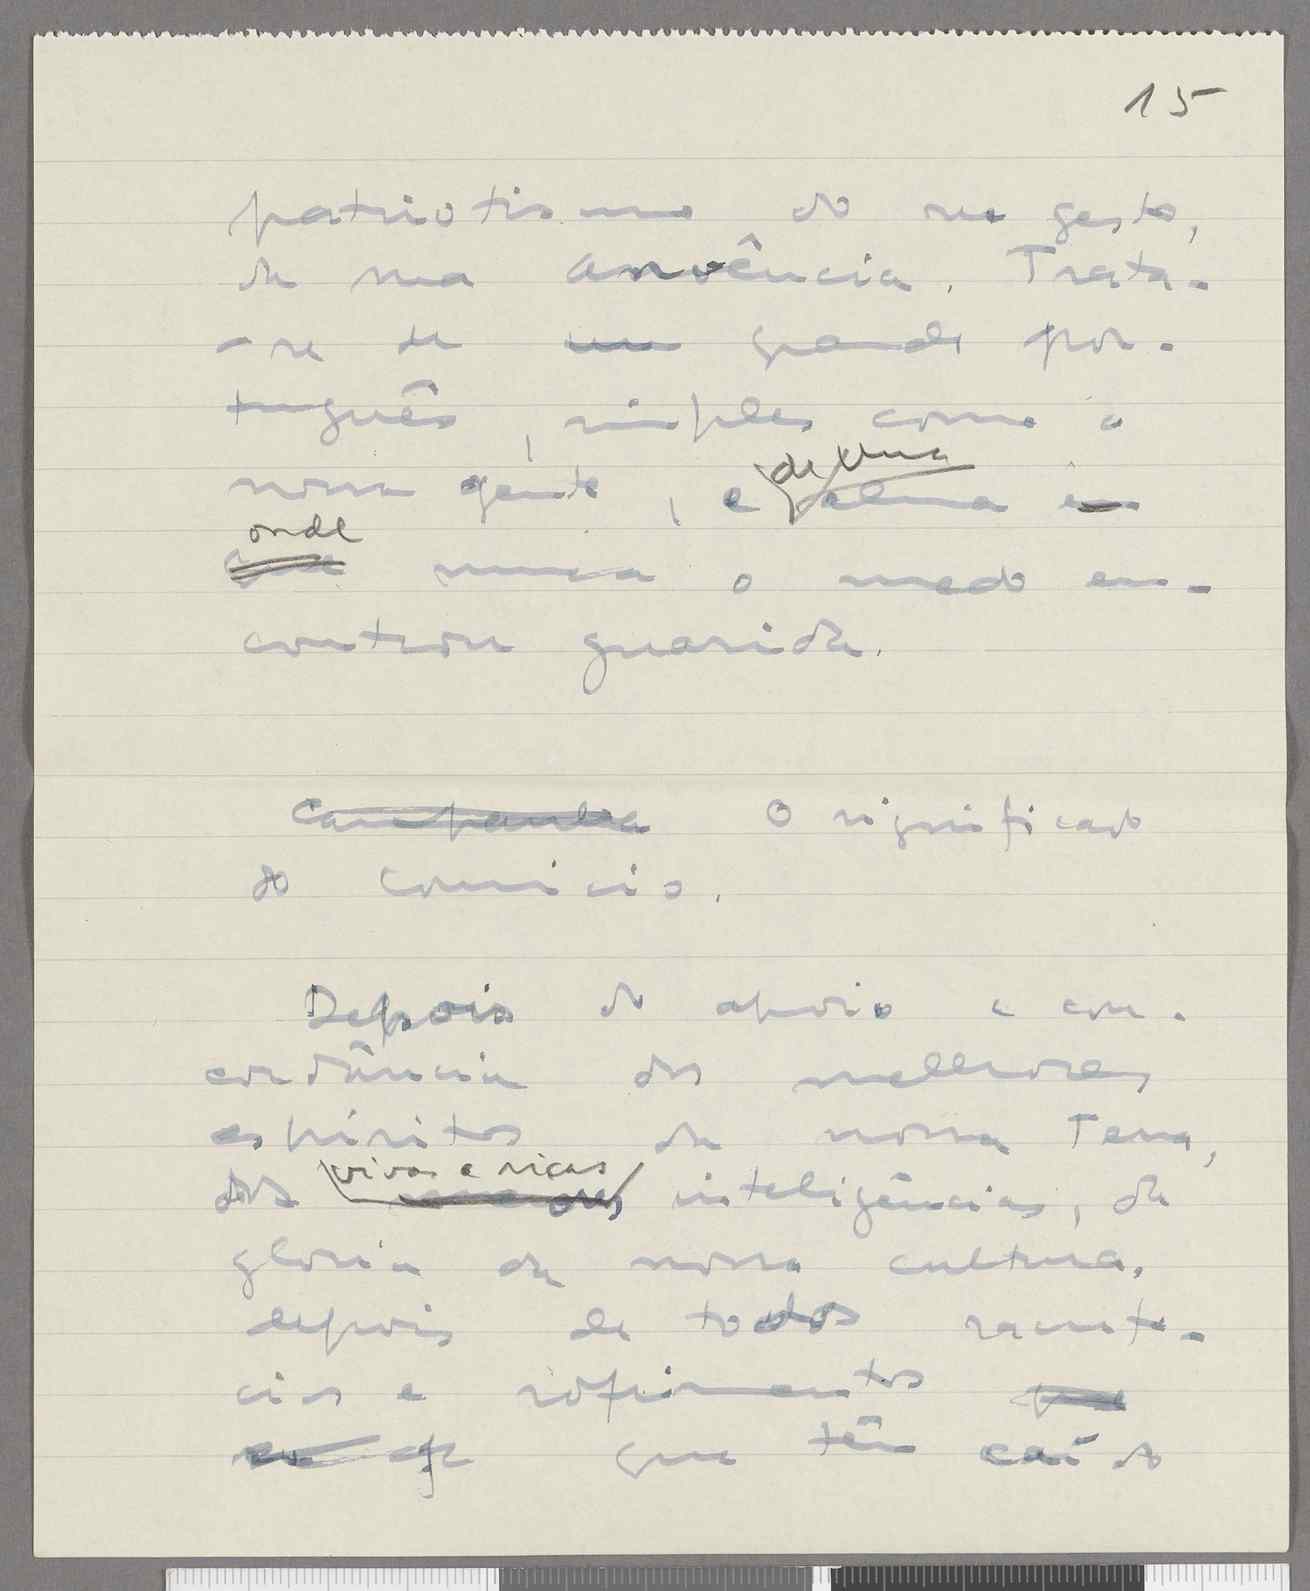 15
patriotismo do seu gesto,
da sua anuência. Trata-
-se de um grande por-
tuguês, simples como a
nossa gente, e de uma alma em
onde
que nunca o medo en-
controu guarida.
Campanha O significado
do comício.
Depois do apoio e con-
cordância dos melhores
espíritos da nossa Terra,
vivas e ricas
das maiores inteligências, da
gloria da nossa cultura,
depois de todos sacrifí-
cios e sofrimentos
que têm caído